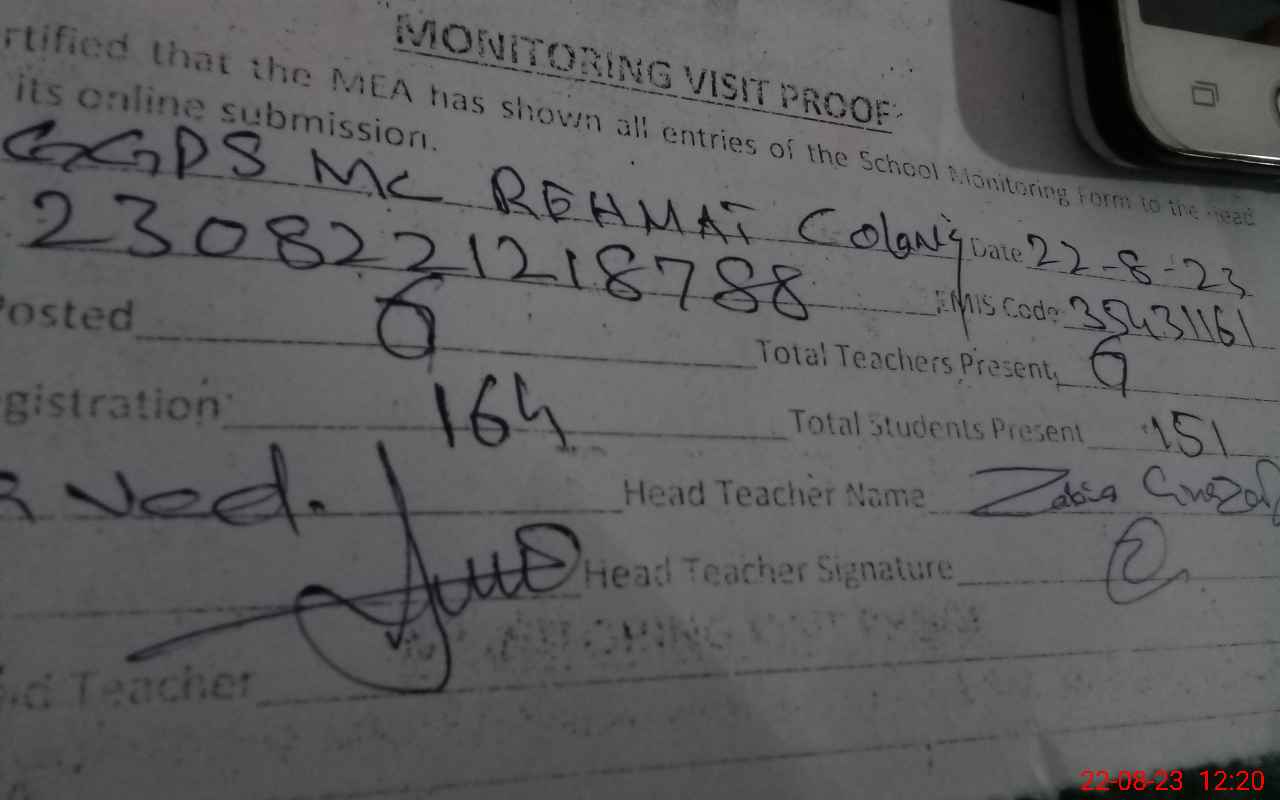 MONITORING VISIT PROOF
rtified that the MEA has shown all entries of the School Monitoring Form to the Head
its online submission.
GGPS MC REHMAT Colony Date 22-8-23
2308221218788 EMIS Code 35431161
Posted 6 Total Teachers Present 6
gistration: 164 Total Students Present 151
ved. Head Teacher Name Zabia
Head Teacher Signature
Teacher
22-08-23 12:20